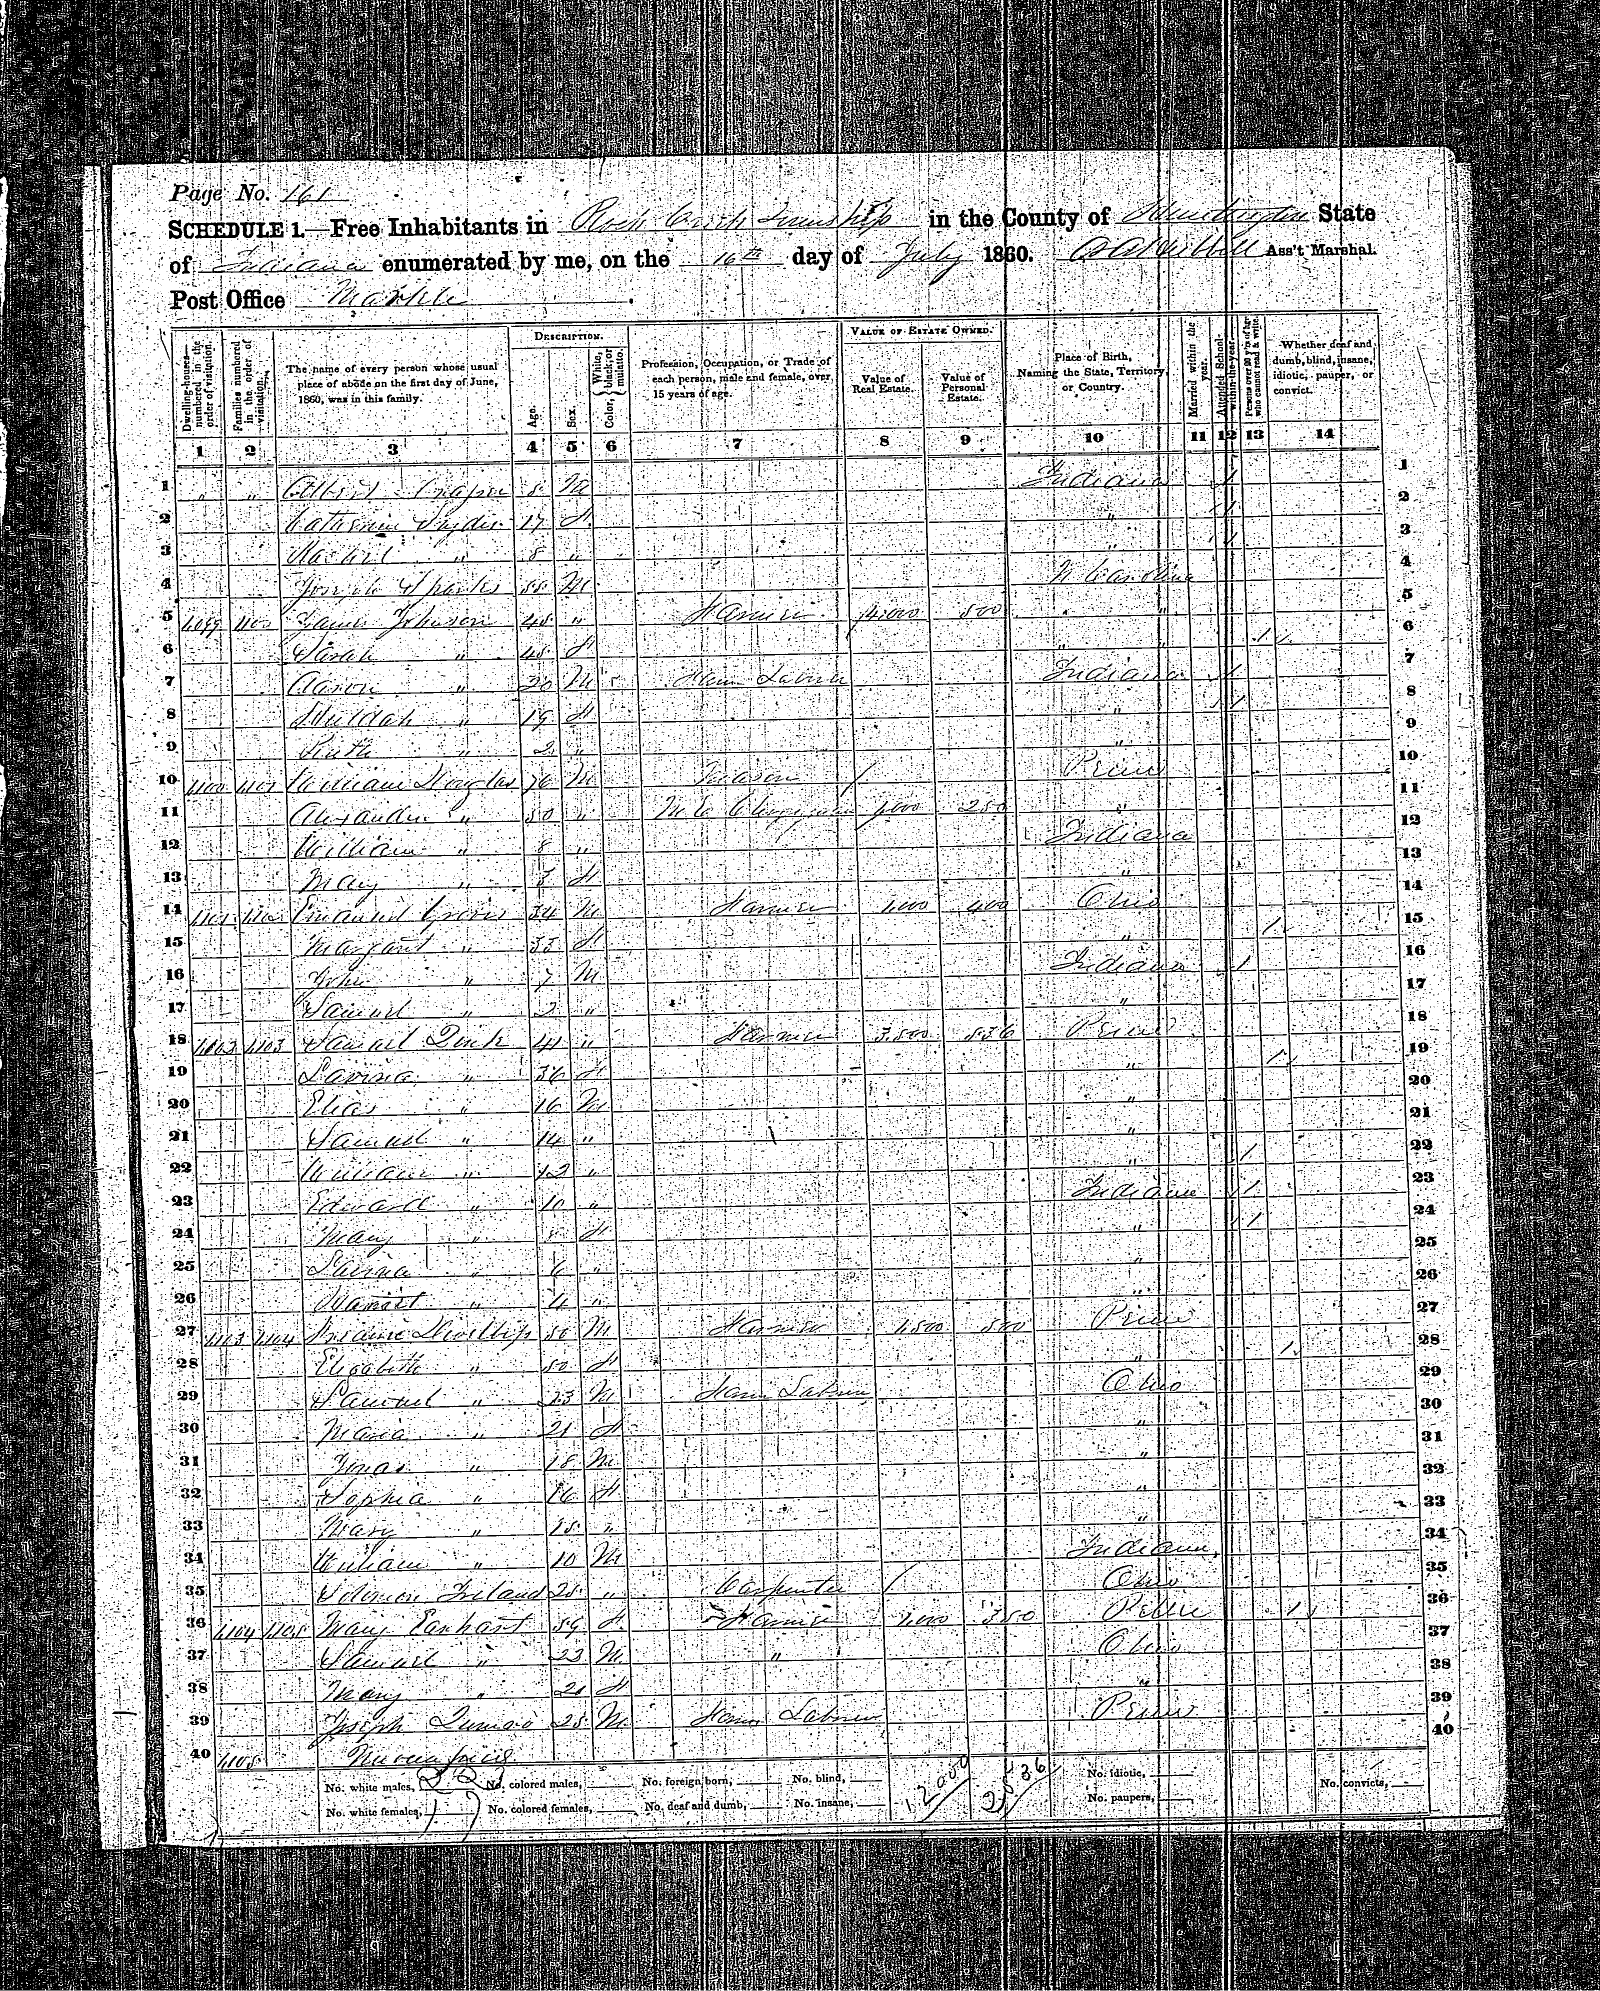 Page No. 161
SCHEDULE 1.—Free Inhabitants in Rock Creek Township in the County of Huntington State
of Indiana enumerated by me, on the 16th day of July 1860. Ass't Marshal.
Post Office Markle
DESCRIPTION. VALUE OF ESTATE OWNED.
Dwelling-houses—numbered in the order of visitation. Families numbered in the order of visitation. The name of every person whose usual place of abode on the first day of June, 1860, was in this family. Age. Sex. Color, {White, black, or mulatto. Profession, Occupation, or Trade of each person, male and female, over 15 years of age. Value of Real Estate. Value of Personal Estate. Place of Birth, Naming the State, Territory, or Country. Married within the year. Attended School within the year. Persons over 20 y'rs of age who cannot read & write. Whether deaf and dumb, blind, insane, idiotic, pauper, or convict.
1 2 3 4 5 6 7 8 9 10 11 12 13 14
1 " " Albert 8 M Indiana 1 1
2 Catherine Snyder 17 F " 1 2
3 " 8 " " 1 3
4 Joseph Sparks 55 M N Carolina 4
5 1099 1100 James Johnson 45 " Farmer 4,000 500 " 5
6 Sarah " 45 F " " 1 6
7 Aaron " 20 M Farm Laborer Indiana 1 7
8 Huldah " 19 F " 1 8
9 Ruth " 2 " " 9
10 1100 1101 William Douglas 76 M Penn 10
11 Alexander " 50 " M E Clergyman 1,000 250 " 11
12 William " 8 " Indiana 12
13 Mary " 3 F " 13
14 1101 1102 Emanuel 34 M Farmer 1,000 400 Ohio 14
15 Margaret " 33 F " 1 15
16 John " 7 M Indiana 1 16
17 Samuel " 2 " " 17
18 1102 1103 Samuel 41 " Farmer 3,500 536 Penn 18
19 Lavina " 36 F " 1 19
20 Elias " 16 M " 20
21 Samuel " 14 " " 21
22 William " 12 " " 1 22
23 Edward " 10 " Indiana 1 23
24 Mary " 8 F " 1 24
25 Lavina " 6 " " 25
26 " 4 " " 26
27 1103 1104 50 M Farmer 1,500 500 Penn 27
28 Elizabeth " 50 F " 1 28
29 Samuel " 23 M Farm Laborer Ohio 29
30 Maria " 21 F " 30
31 " 18 M " 31
32 Sophia " 16 F " 32
33 Mary " 15 " " 33
34 William " 10 M Indiana 34
35 Solomon Ireland 25 " Carpenter Ohio 35
36 1104 1105 Mary Earhart 59 F Farmer 1,000 350 Penn 1 36
37 Samuel " 23 M " Ohio 37
38 Mary " 21 F " 38
39 Joseph 25 M Farm Laborer Penn 39
40 1105 40
No. white males, 23 No. colored males, No. foreign born, No. blind, 12000 2836 No. idiotic, No. convicts,
No. white females, 17 No. colored females, No. deaf and dumb, No. insane, No. paupers,